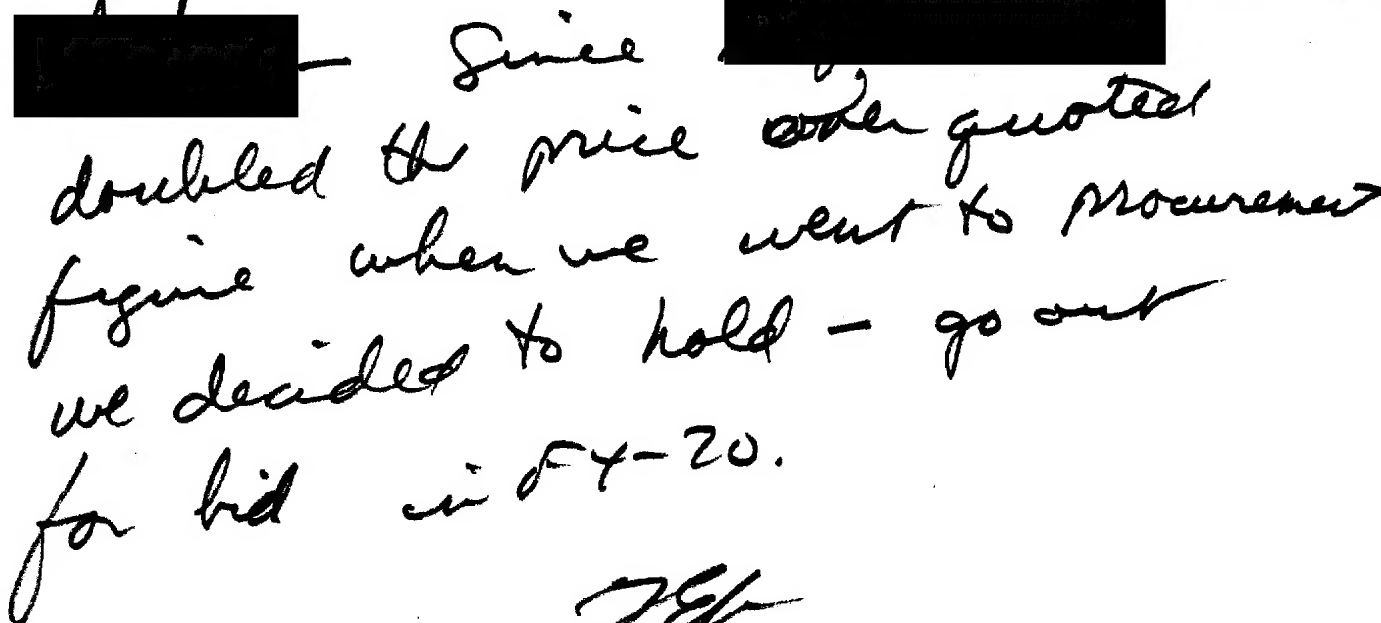 — Since
doubled the price over quoted
figure when we went to procurement
we decided to hold — go out
for bid in FY-20.